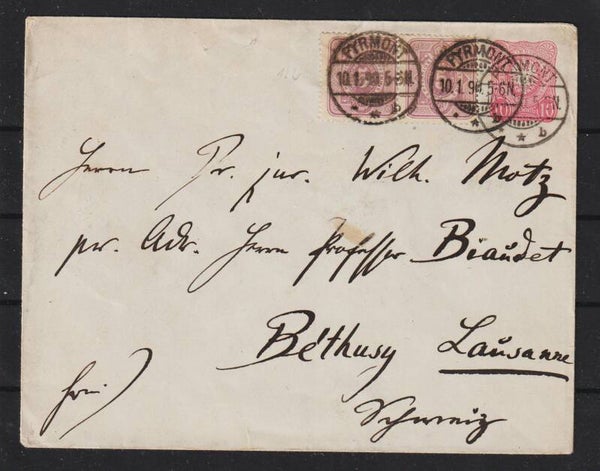 PYRMONT
10.1.90.5-6N.
* * b
PYRMONT
10.1.90.5-6N.
* * b
Herrn Dr. jur. Wilh. Motz
pr. Adr. Herrn Professor Biaudet
Béthusy Lausanne
frei)
Schweiz